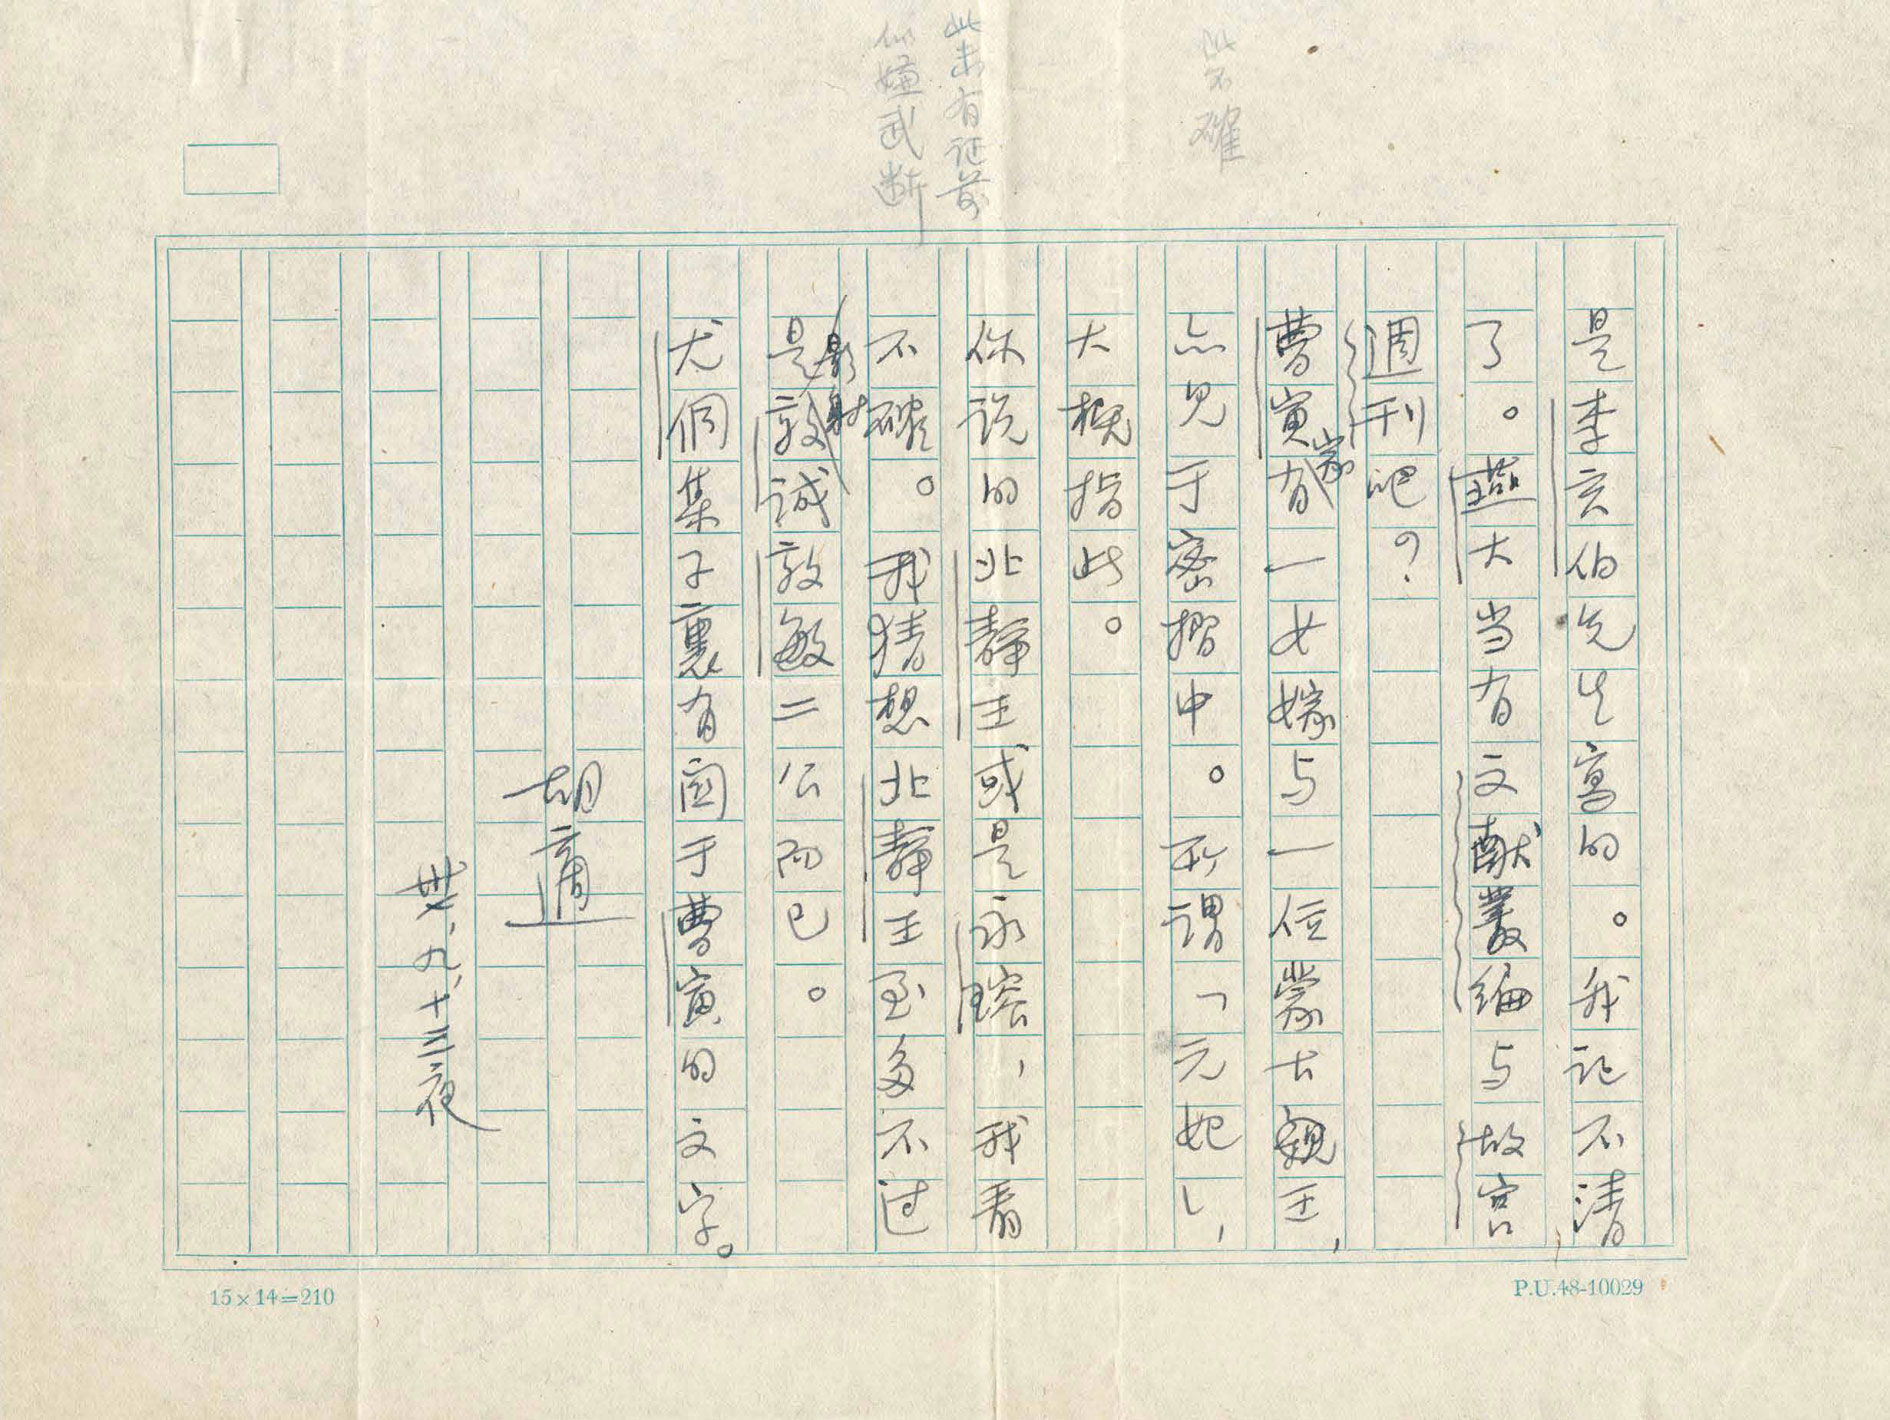 此不確
此未有证前
似嫌武断
是李玄伯先生寫的。我记不清
了。燕大当有文献叢编与故宫
週刊吧？
曹寅家有一女嫁与一位蒙古親王，
亦见于密摺中。所谓「元妃」，
大概指此。
你说的北靜王或是永瑢，我看
不確。我猜想北靜王至多不过
是影射敦誠敦敏二公而已。
尤侗集子裏有関于曹寅的文字。
胡適
卅七、九、十三夜
15×14=210
P.U.48-10029